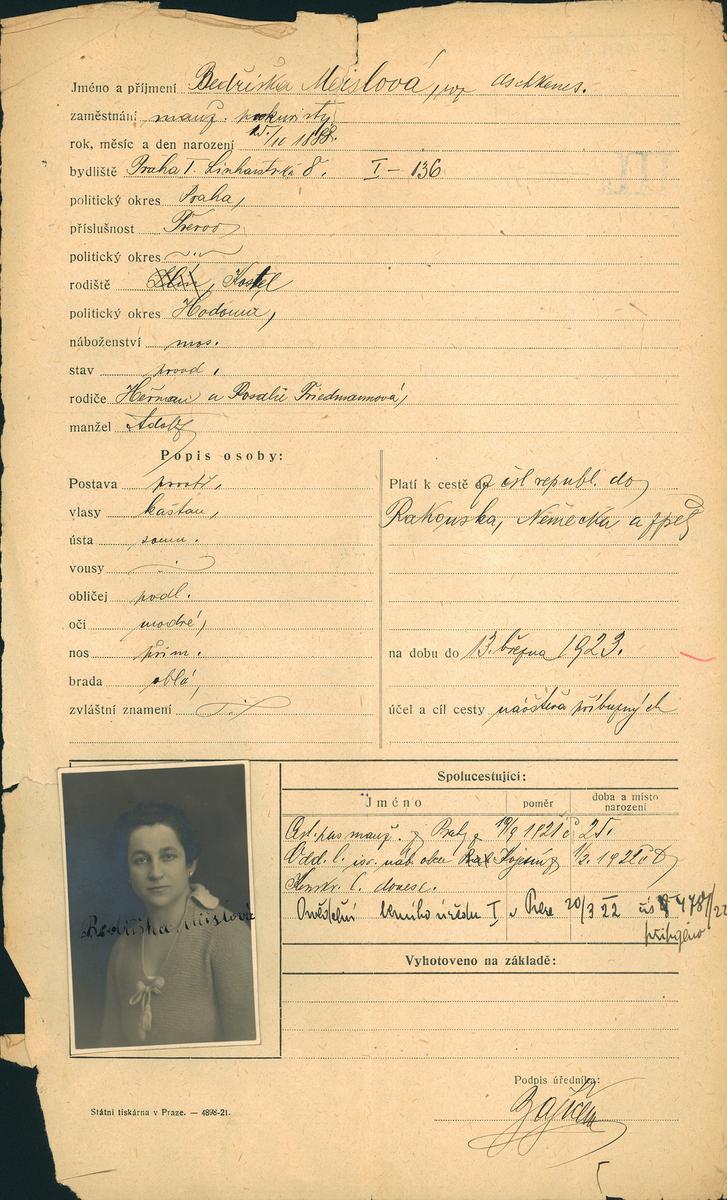 Jméno a příjmení Bedřiška Meislová, roz. Aschkenes.
zaměstnání manž. prokuristy
rok, měsíc a den narození 15/10 1888.
bydliště Praha I. Linhartská 8. I – 136
politický okres Praha,
příslušnost Přerov
politický okres
rodiště Zlín, Kostel
politický okres Hodonín,
náboženství mos.
stav provd.
rodiče Heřman a Rosalie Friedmannová,
manžel Adolf
Popis osoby:
Postava prostř.
vlasy kaštan,
ústa soum.
vousy
obličej podl.
oči modré,
nos přim.
brada oblá,
zvláštní znamení
Platí k cestě do z čsl republ. do
Rakouska, Německa a zpět
na dobu do 13. března 1923.
účel a cíl cesty návštěva příbuzných
Spolucestující:
Jméno poměr doba a místo narození
Čsl. pas manž. z Prahy 19/9 1921 č 25.
Odd. l. isr. náb. obce Kojetín 1/2. 1921
l. donesc.
Osvědčení berního úřadu I v Praze 20/3 22 čís 4787/22
připojeno
Bedřiška Meislová
Vyhotoveno na základě:
Podpis úředníka:
Státní tiskárna v Praze. — 4898-21.